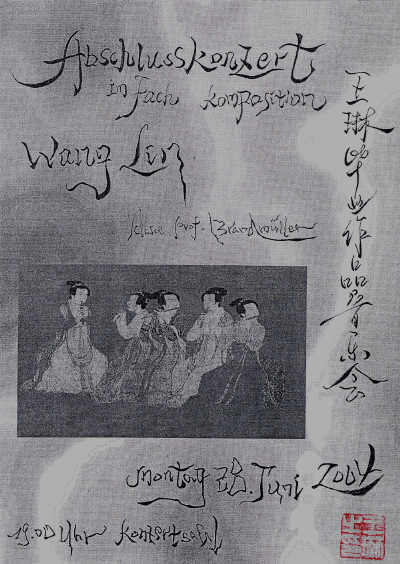 Abschlusskonzert
im Fach Komposition
Wang Lin
Klasse Prof. Brandmüller
王琳毕业作品音乐会
Montag 28. Juni 2004
19.00 Uhr Konzertsaal